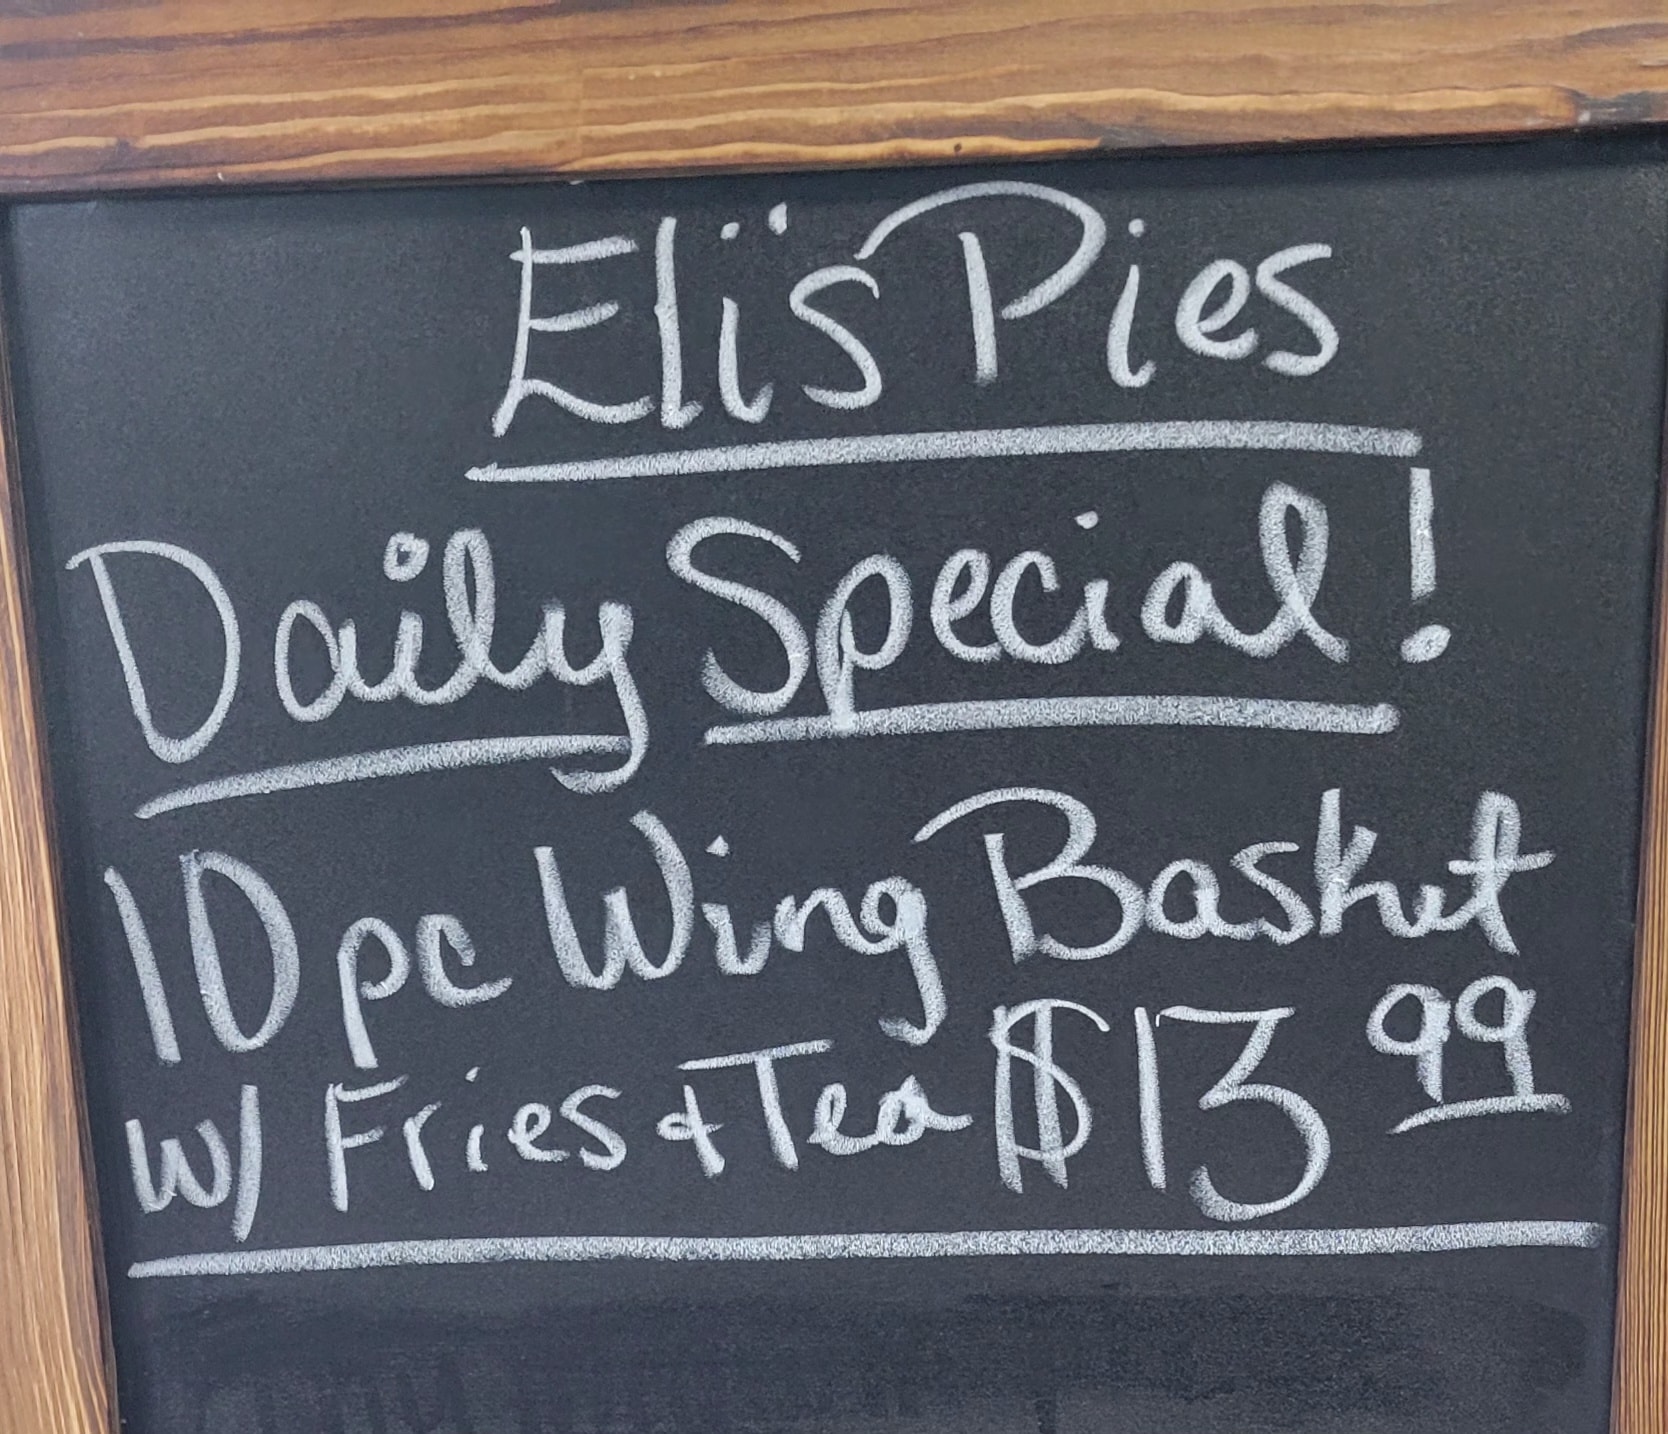 Eli's Pies
Daily Special!
10 pc Wing Basket
w/ Fries & Tea $13 99